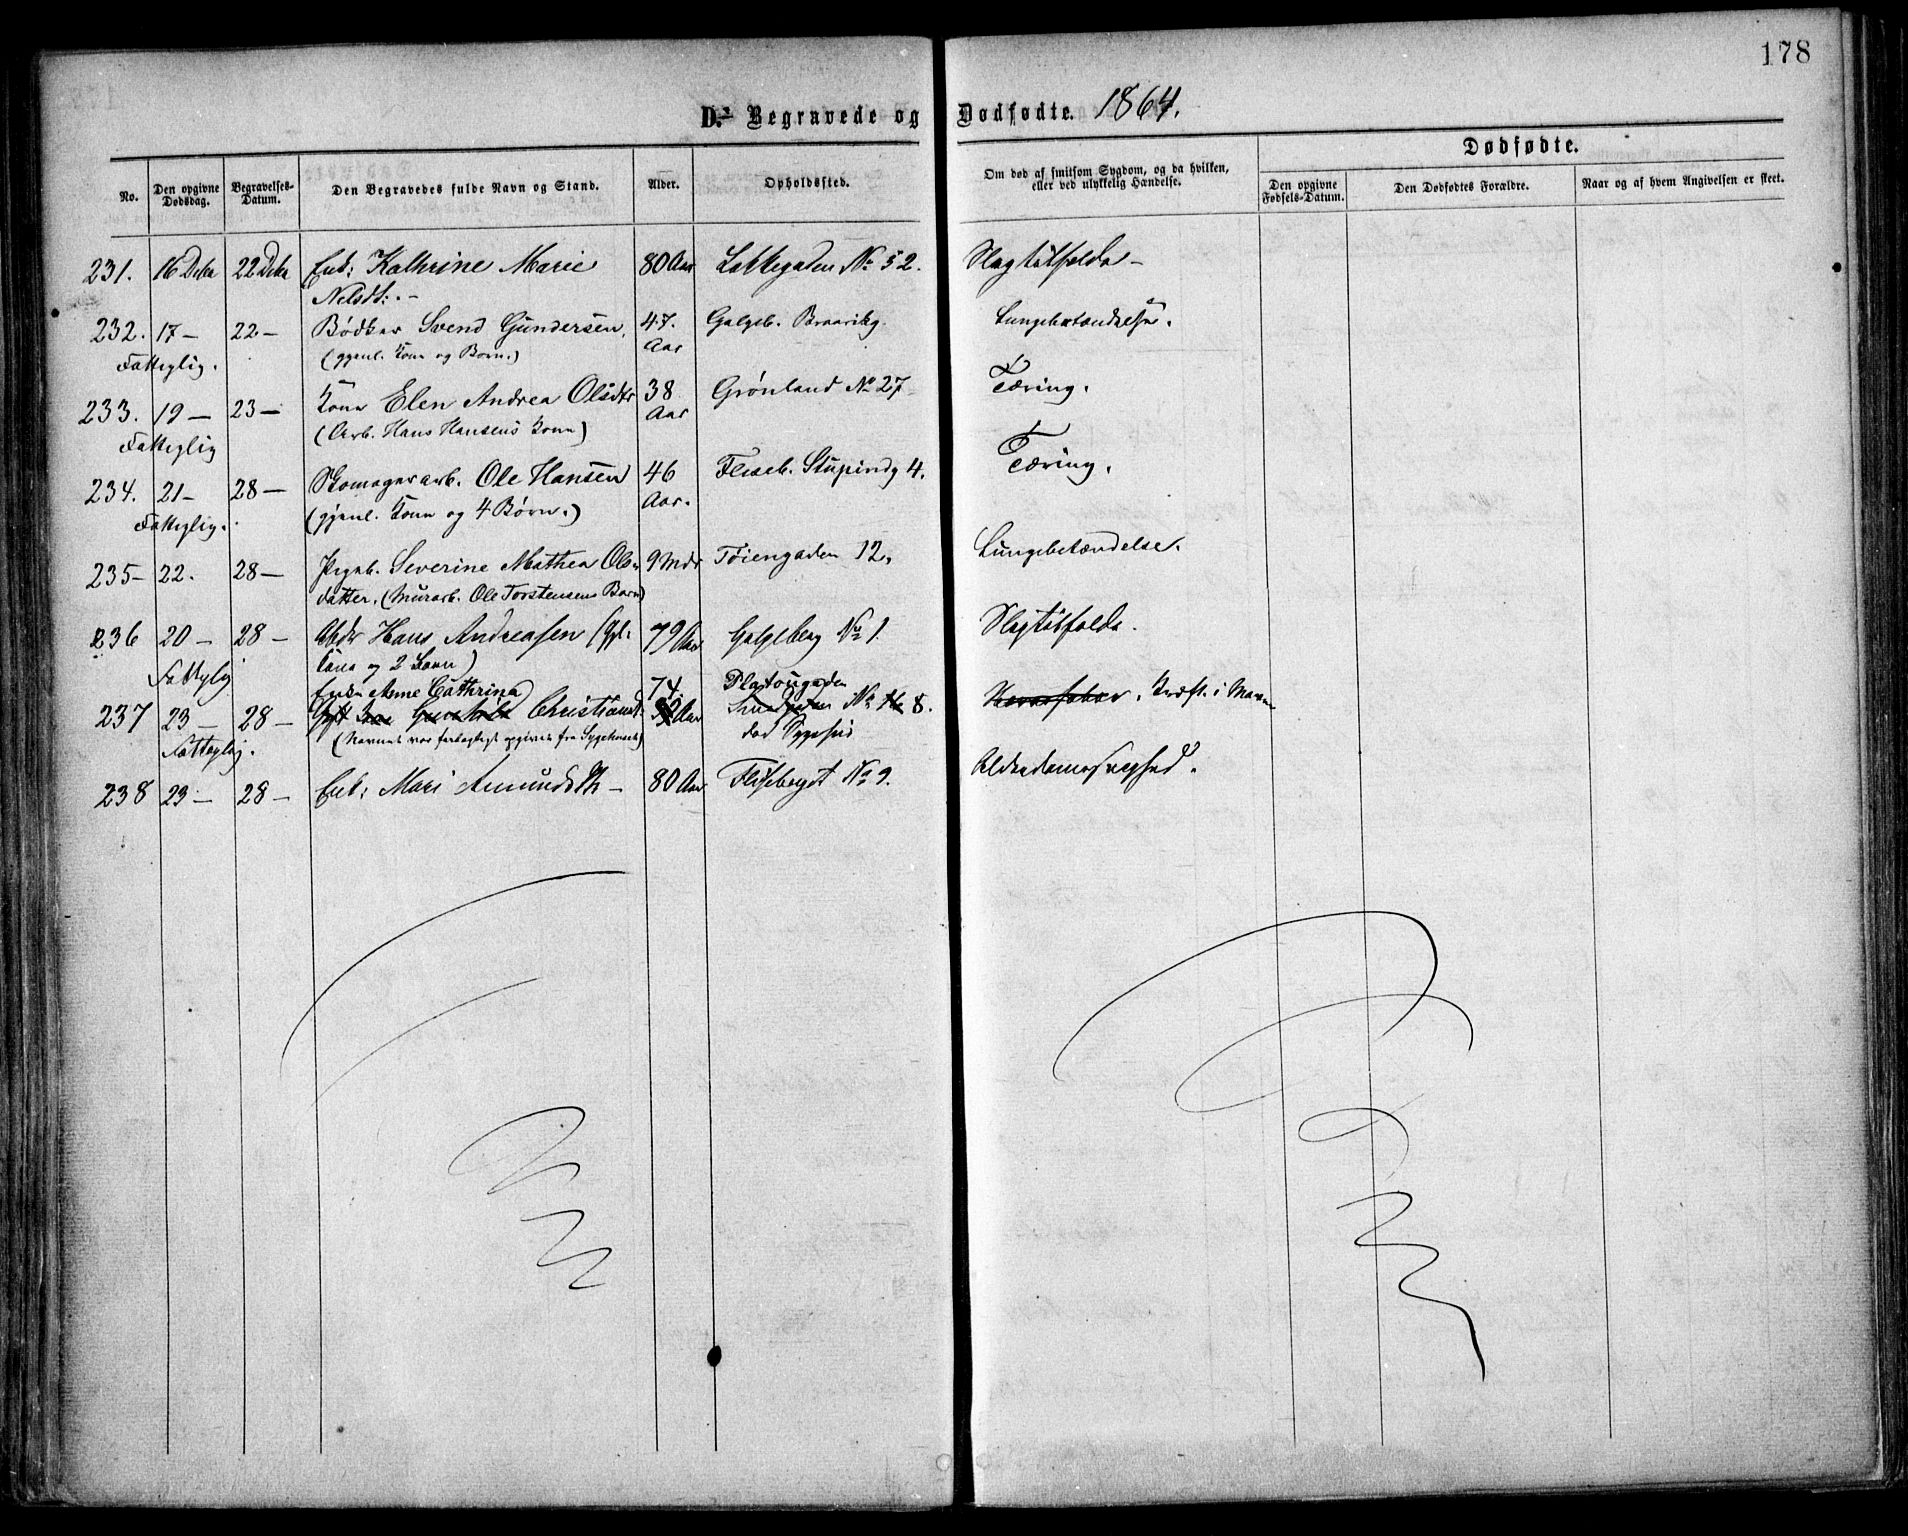 178
D. Begravede og Dødfødte. 1864.
Dødfødte.
No. Den opgivne Dødsdag. Begravelses-Datum. Den Begravedes fulde Navn og Stand. Alder. Opholdssted. Om død af smitsom Sygdom, og da hvilken, eller ved ulykkelig Hændelse. Den opgivne Fødsels-Datum. Den Dødfødtes Forældre. Naar og af hvem Angivelsen er skeet.
231. 16 Decbr 22 Decbr Enk: Kathrine Marie 80 Aar Lakkegaden No 52. Slagtilfælde –
Nelsdt: –
232. 17 – 22 – Bødker Svend Gundersen, 47. Aar Galgeb. Slungebetændelse.
Fattiglig. (gjenl. Kone og Børn.)
233. 19 – 23 – Kone Elen Andrea Olsdtr 38 Aar Grønland No 27 Tæring.
Fattiglig (Arb. Hans Hansens Kone)
234. 21 – 28 – Skomagerarb. Ole Hansen 46 Aar. Fliseb. Stupindg 4. Tæring.
Fattiglig. (gjenl. Kone og 4 Børn.)
235 – 22. 28 – Pigeb. Severine Mathea Ols- 9 Mdr Tøiengaden 12. Lungebetændelse.
datter. (Murarb. Ole Torstensens Barn)
236 20 – 28 – Arbdr Hans Andreasen (Gjl: 79 Aar Galgeberg No 1. Slagtilfælde.
Kone og 2 Børn)
Fattiglig
Enke Anne Cathrina 74. Platougaden
237 23 – 28 – Christiansd: Aar No 8. Kræft i Maven
Fattiglig. (Navnet var feilagtigt opgivet fra Sygehuset) død Sygehus
238 23 – 28 – Enk: Mari Amundsdtr – 80 Aar Fliseberget No 9. Alderdomssvaghed.